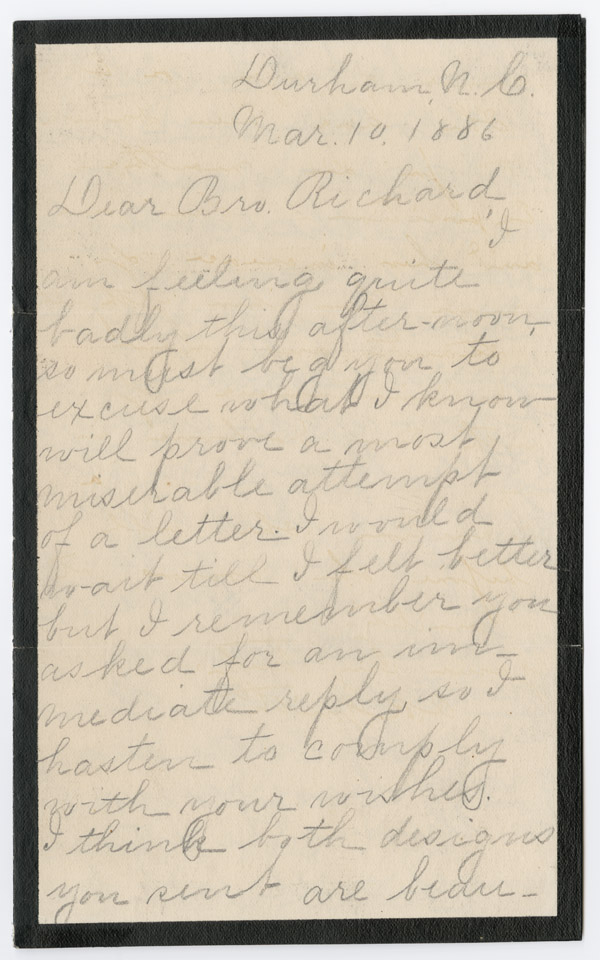 Durham, N. C.
Mar. 10, 1886
Dear Bro. Richard,
I
am feeling quite
badly this after-noon,
so must beg you to
excuse what I know
will prove a most
miserable attempt
of a letter. I would
wait till I felt better
but I remember you
asked for an im-
mediate reply, so I
hasten to comply
with your wishes.
I think both designs
you sent are beau-